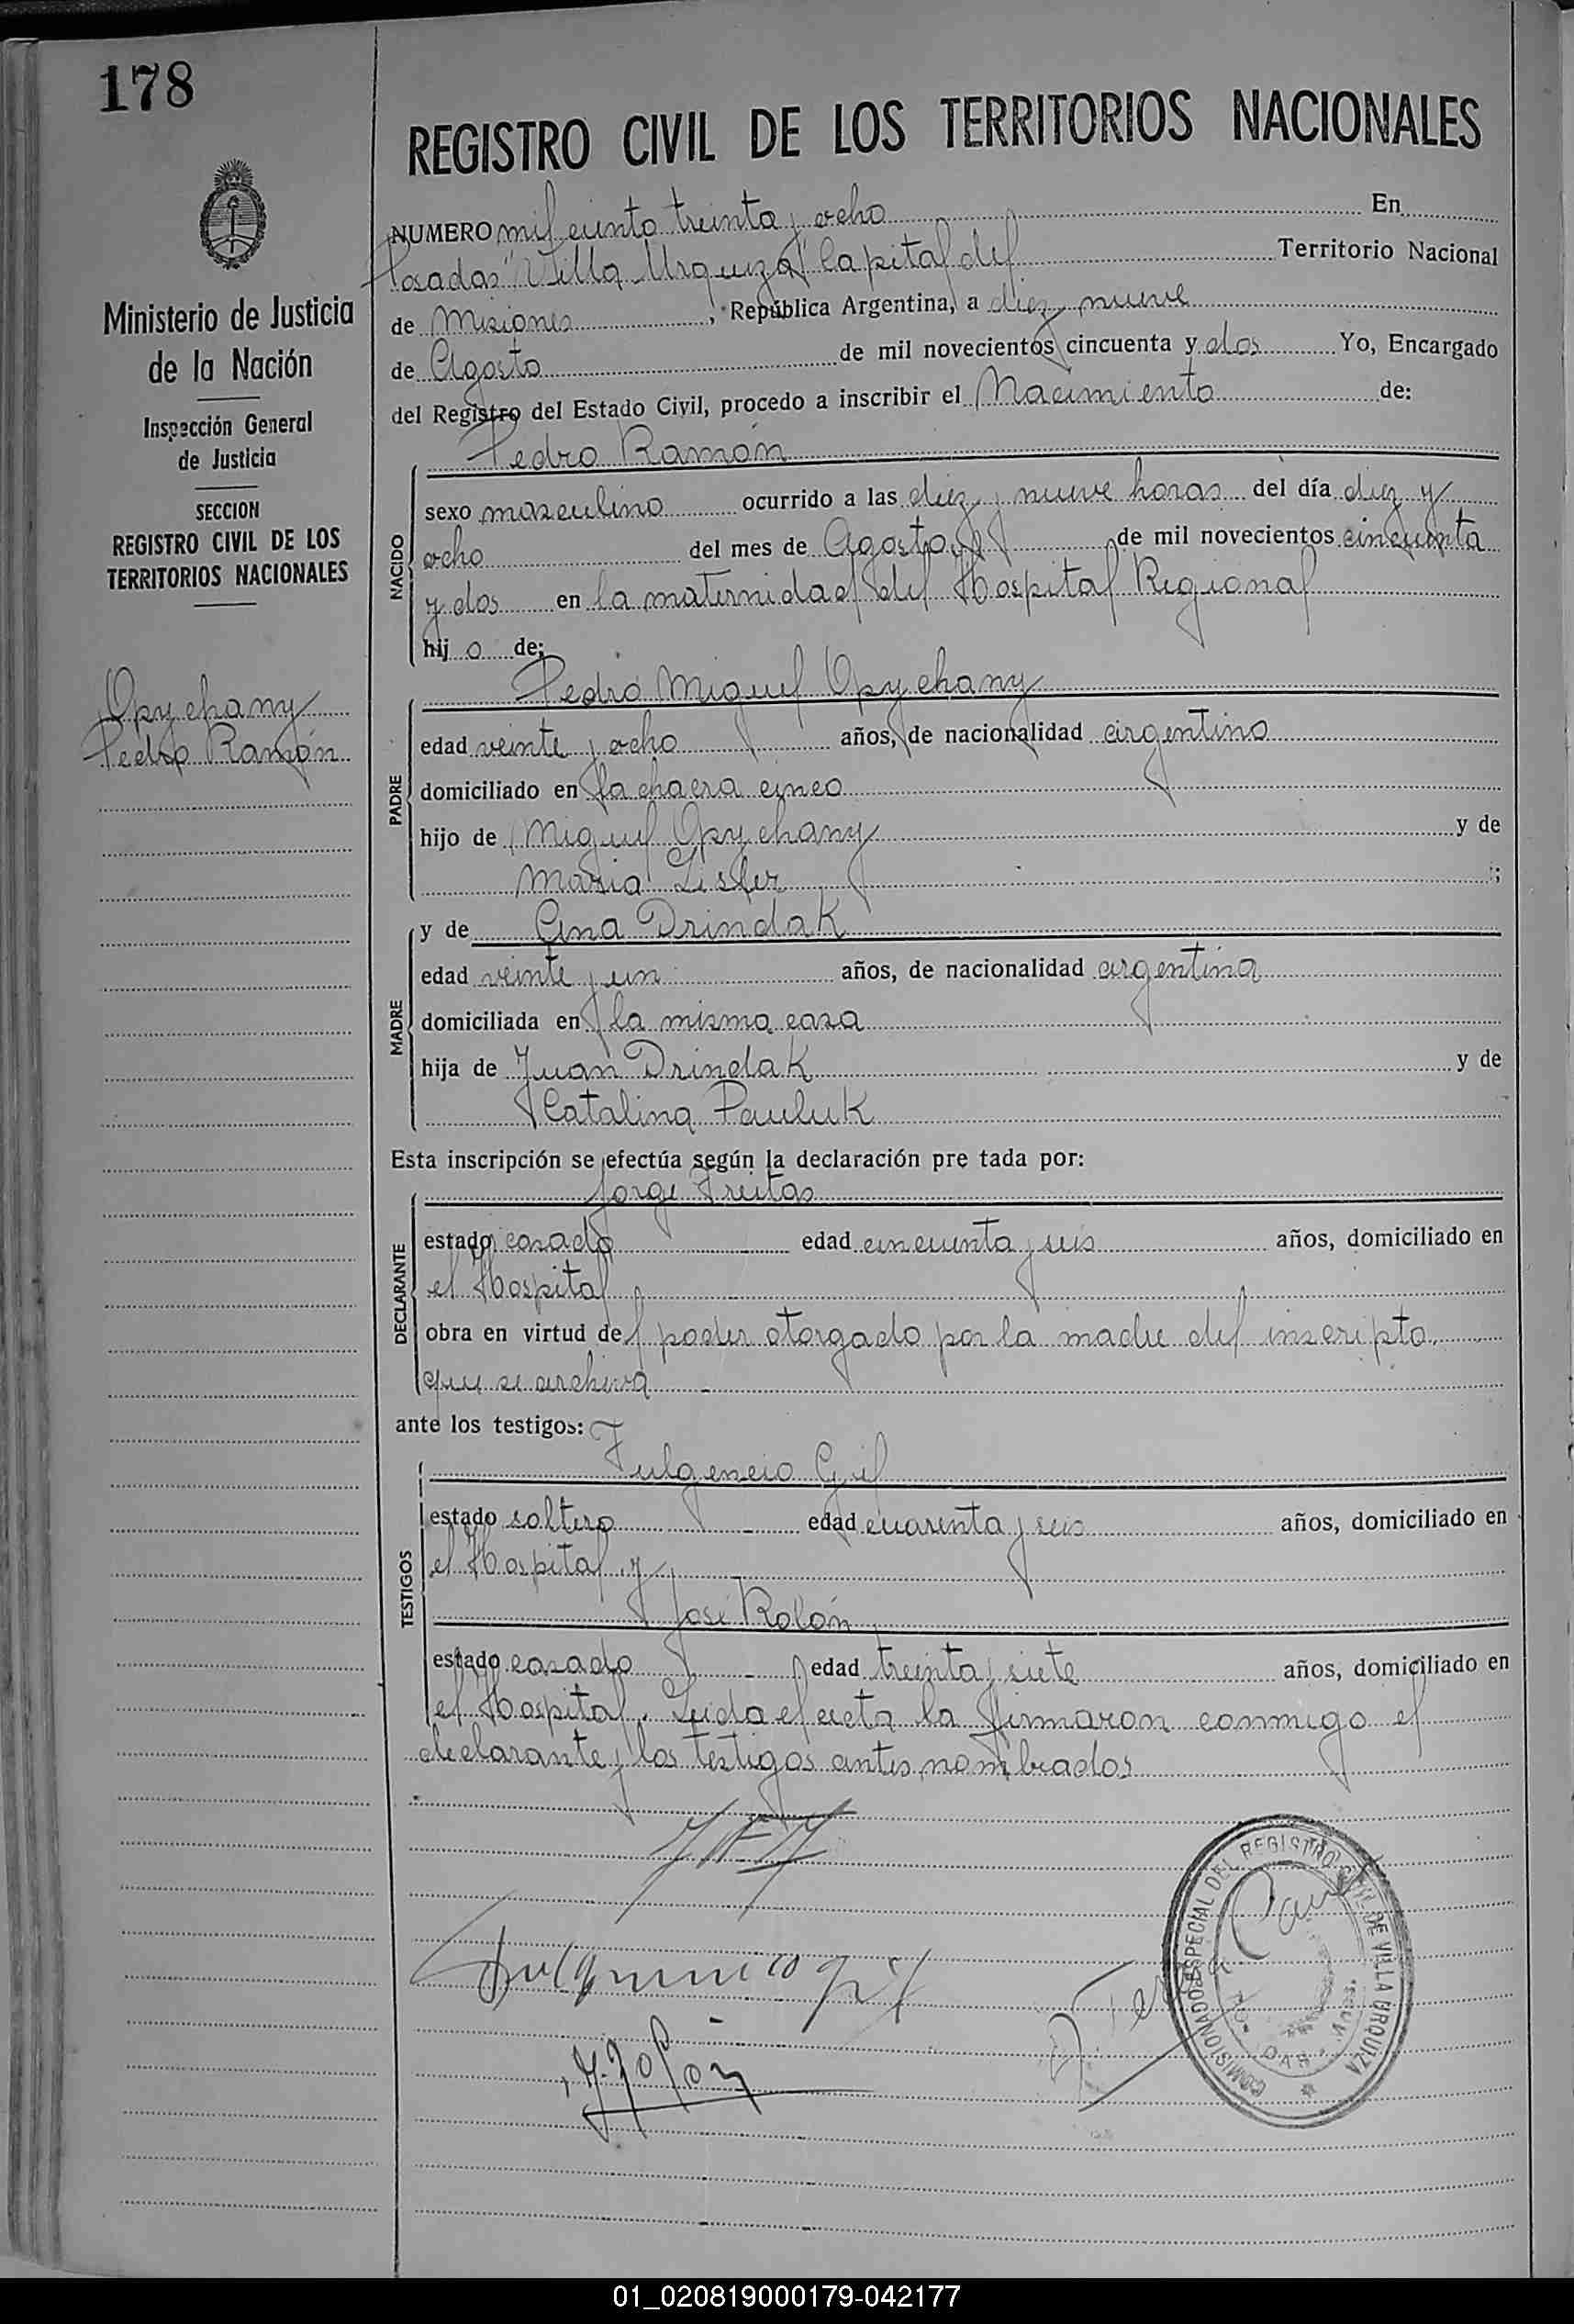 178
REGISTRO CIVIL DE LOS TERRITORIOS NACIONALES
Ministerio de Justicia
de la Nación
Inspección General
de Justicia
SECCION
REGISTRO CIVIL DE LOS
TERRITORIOS NACIONALES
Opychany
Pedro Ramón
NUMERO mil ciento treinta y ocho En
Posadas "Villa Urquiza" Capital del Territorio Nacional
de Misiones, República Argentina, a diez y nueve
de Agosto de mil novecientos cincuenta y dos Yo, Encargado
del Registro del Estado Civil, procedo a inscribir el Nacimiento de:
Pedro Ramón
NACIDO
sexo masculino ocurrido a las diez y nueve horas del día diez y
ocho del mes de Agosto de mil novecientos cincuenta
y dos en la maternidad del Hospital Regional
hijo de:
Pedro Miguel Opychany
PADRE
edad veinte y ocho años, de nacionalidad argentino
domiciliado en la chacra cinco
hijo de Miguel Opychany y de
Maria Lisler ;
MADRE
y de Ana Drindak
edad veinte y un años, de nacionalidad argentina
domiciliada en la misma casa
hija de Juan Drindak y de
Catalina Pauluk
Esta inscripción se efectúa según la declaración pre tada por:
Jorge Freitas
DECLARANTE
estado casado edad cincuenta y seis años, domiciliado en
el Hospital
obra en virtud del poder otorgado por la madre del inscripto,
que se archiva
ante los testigos:
Fulgencio Gil
TESTIGOS
estado soltero edad cuarenta y seis años, domiciliado en
el Hospital y
José Rolón
estado casado edad treinta y siete años, domiciliado en
el Hospital. Leida el acta la firmaron conmigo el
declarante y los testigos antes nombrados
Fulgencio Gil
J. Rolón
COMISIONADO ESPECIAL DEL REGISTRO CIVIL DE VILLA URQUIZA
01_020819000179-042177